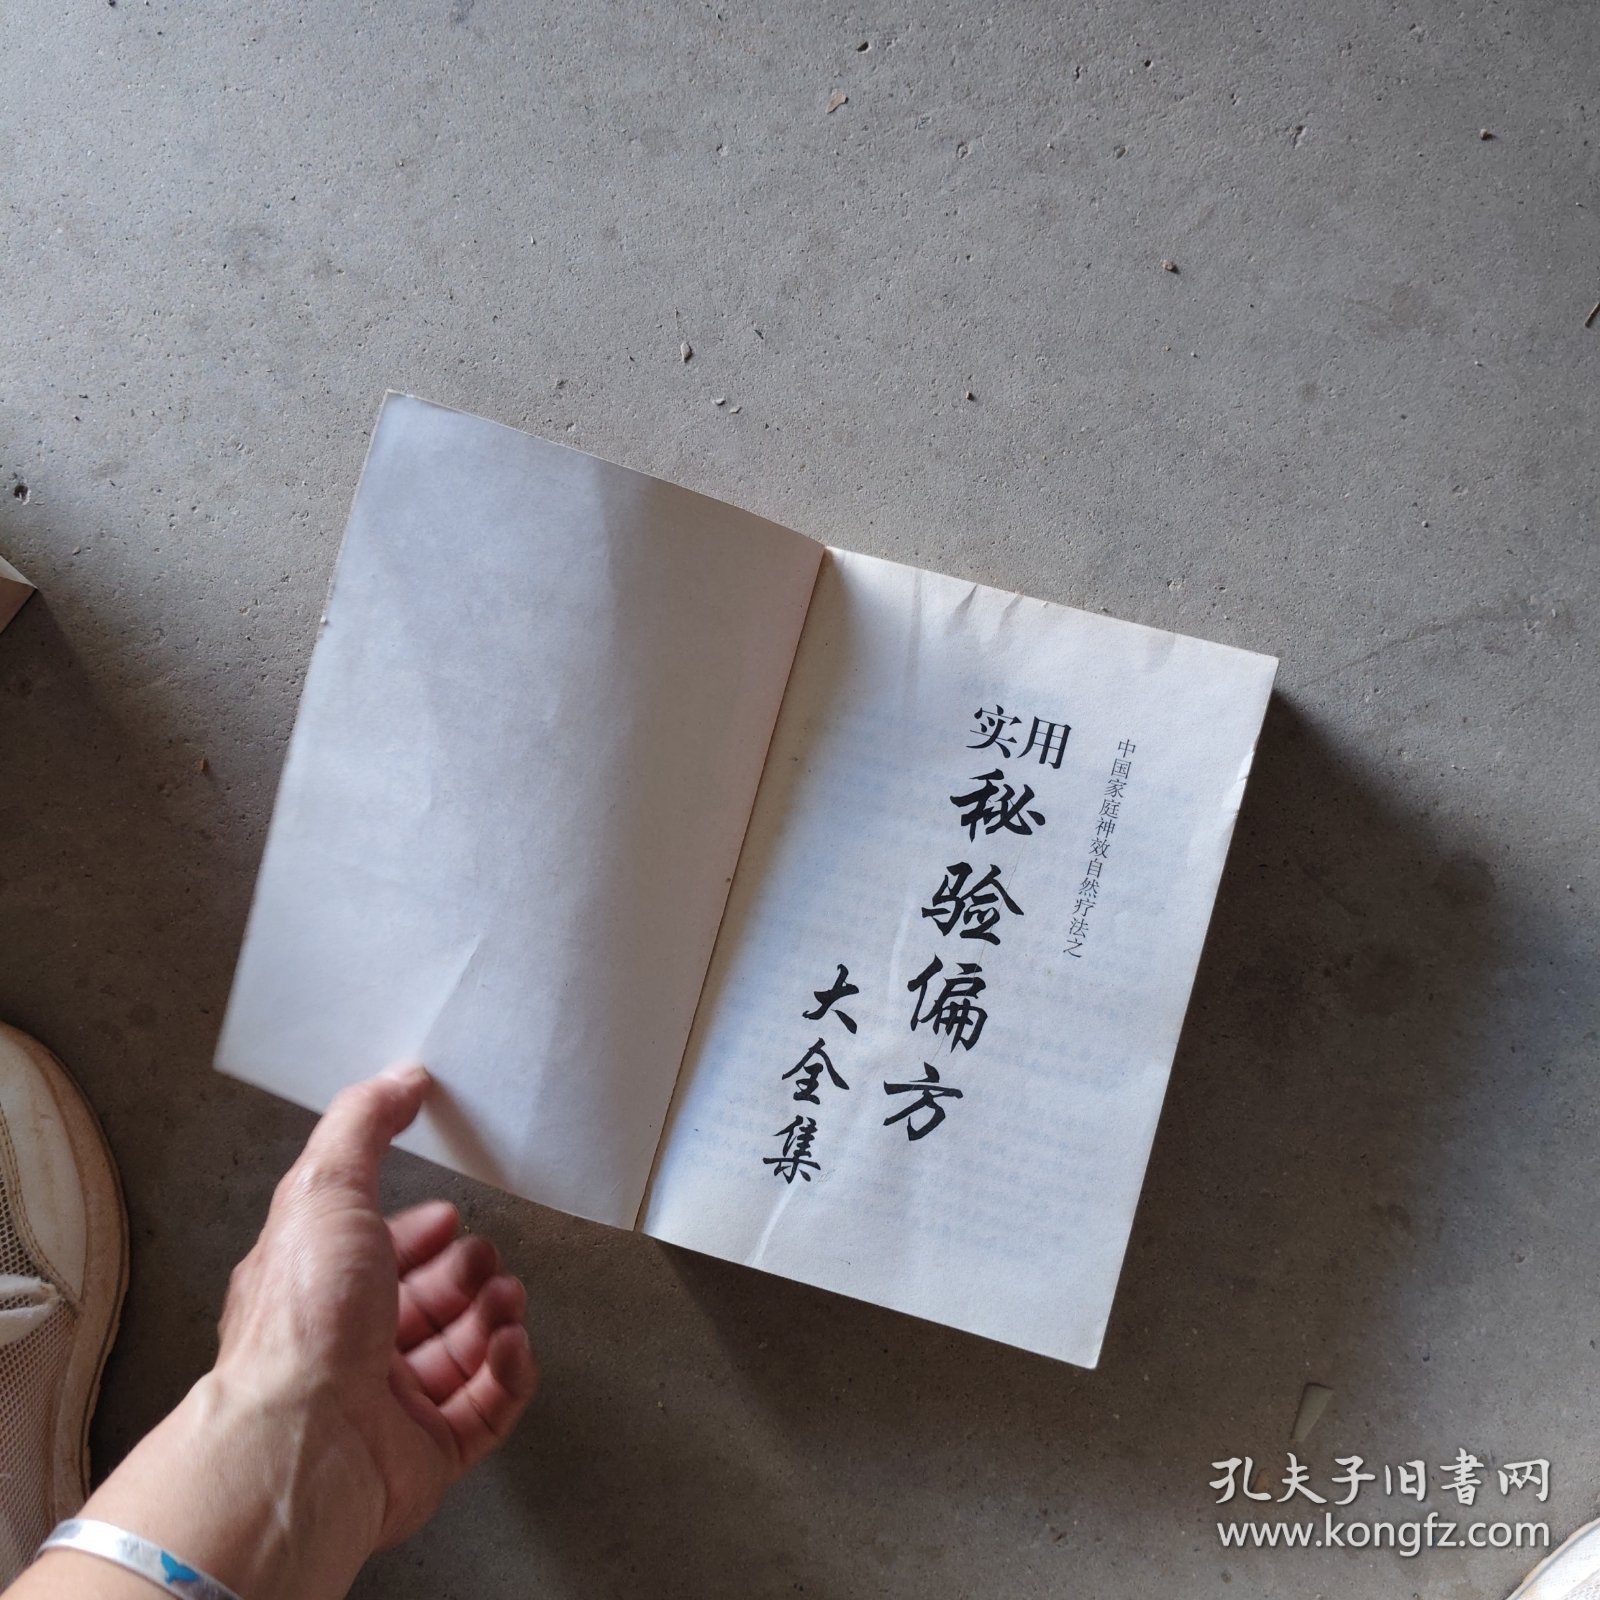 中国家庭神效自然疗法之
实用
秘验偏方
大全集
孔夫子旧書网
www.kongfz.com